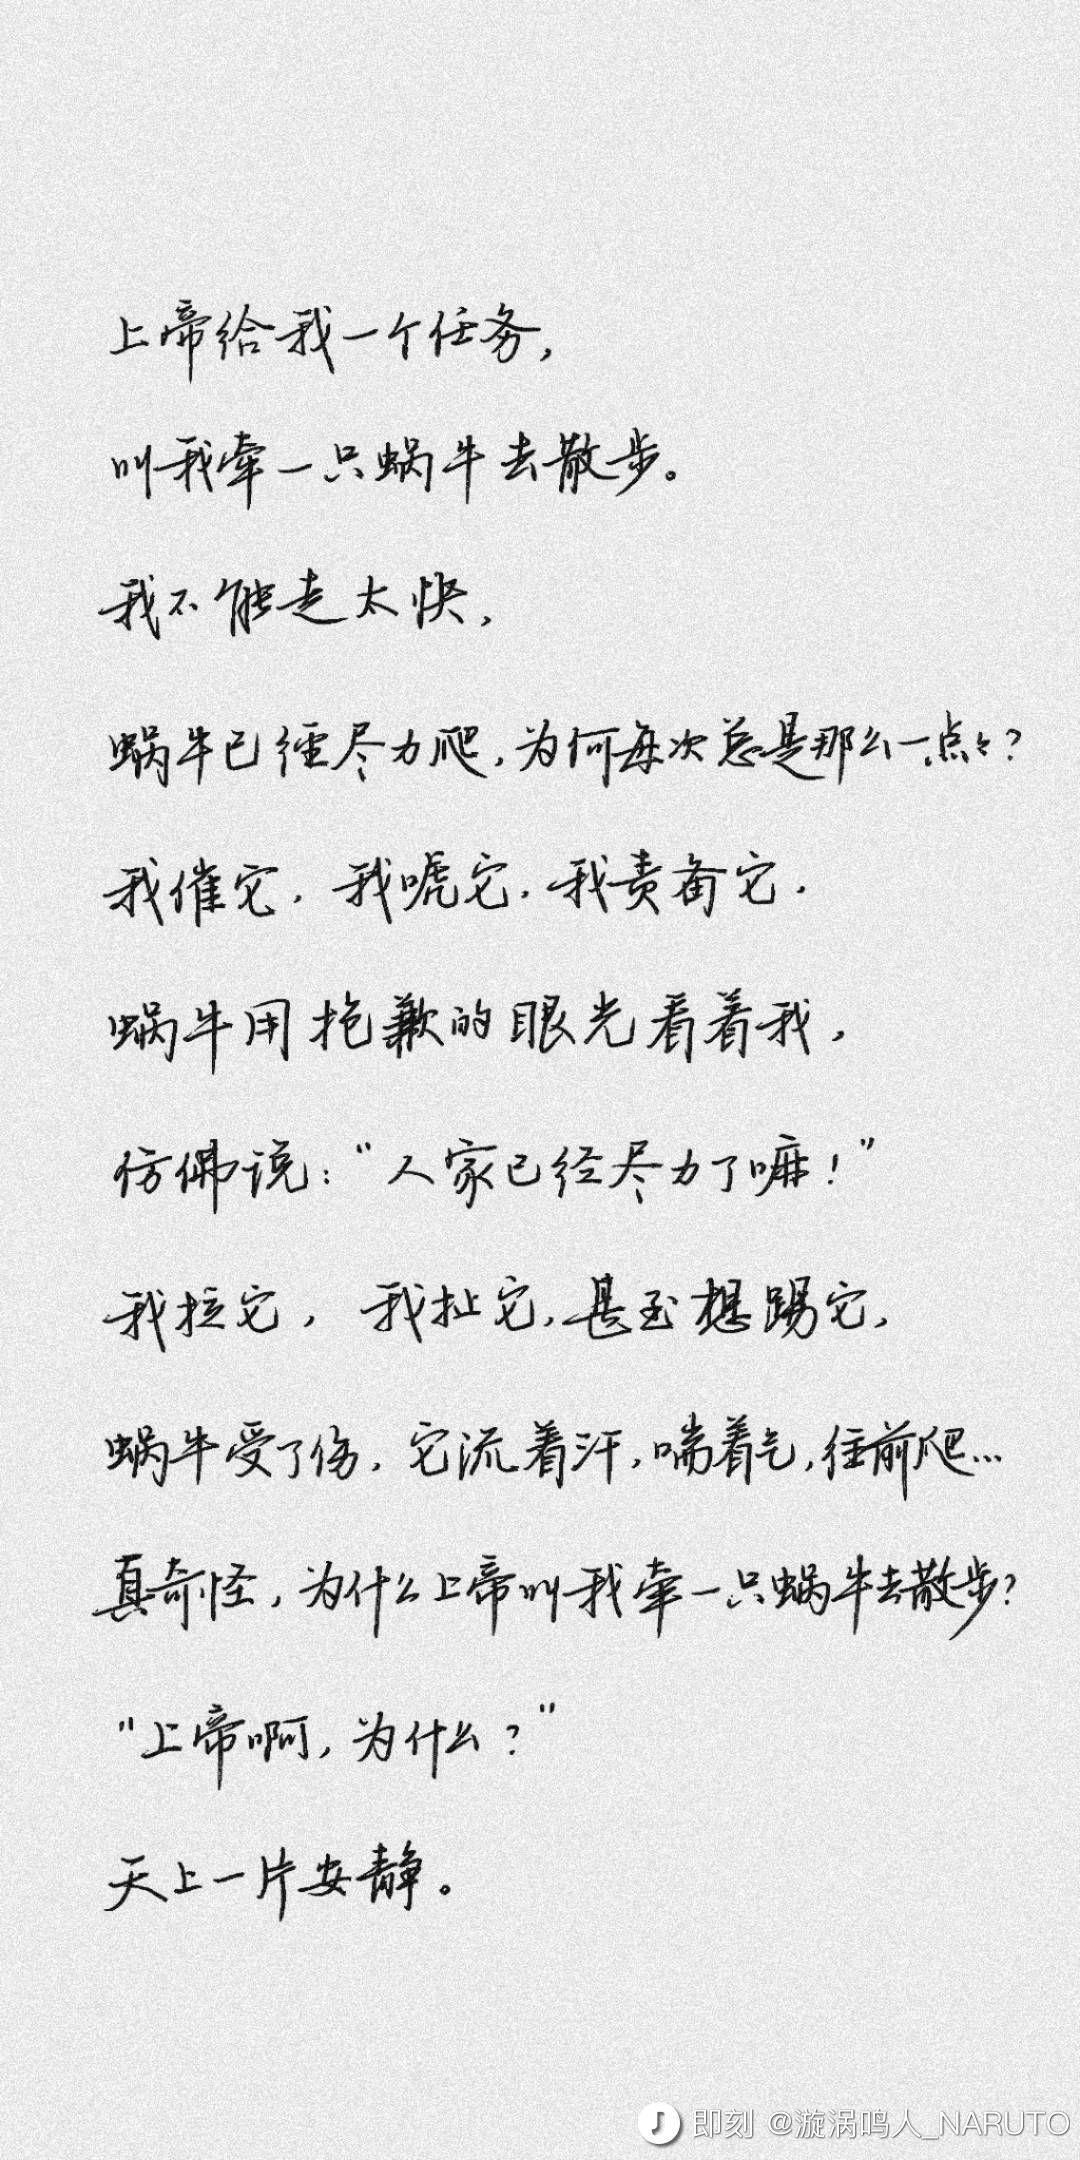 上帝给我一个任务，
叫我牵一只蜗牛去散步。
我不能走太快，
蜗牛已经尽力爬，为何每次总是那么一点々？
我催它，我唬它，我责备它，
蜗牛用抱歉的眼光看着我，
仿佛说：“人家已经尽力了嘛！”
我拉它，我扯它，甚至想踢它，
蜗牛受了伤，它流着汗，喘着气，往前爬…
真奇怪，为什么上帝叫我牵一只蜗牛去散步？
“上帝啊，为什么？”
天上一片安静。
即刻 @漩涡鸣人_NARUTO